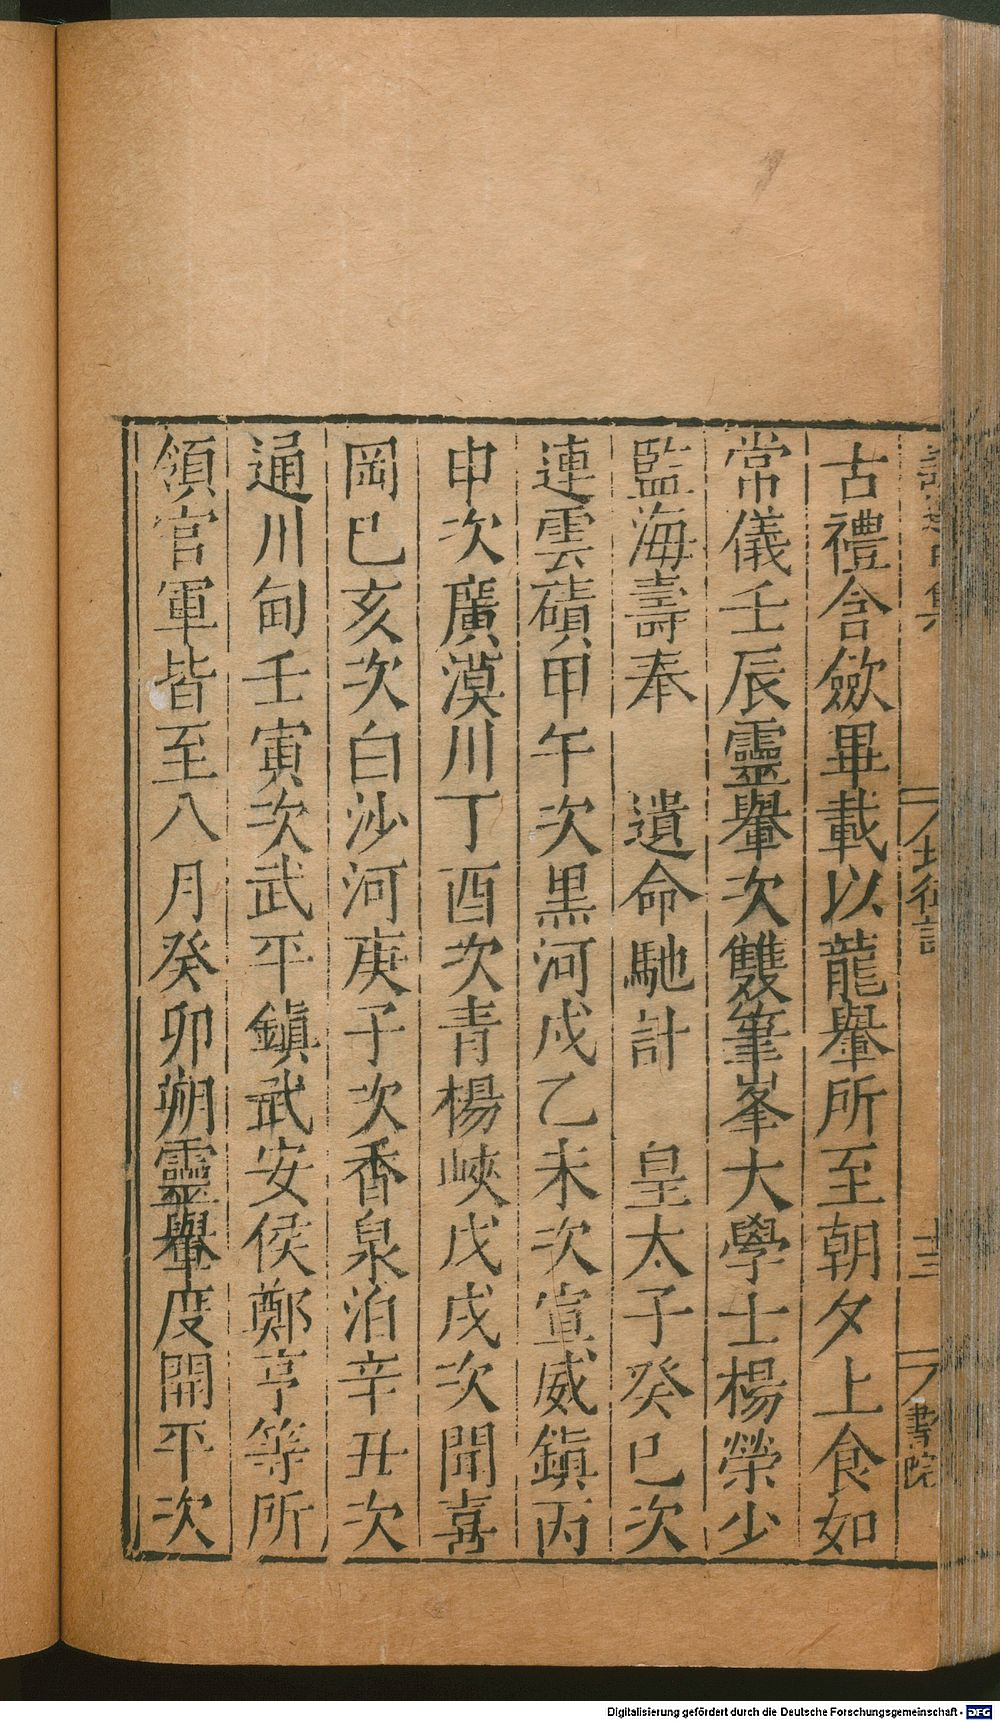 北征記
書院
古禮含斂畢載以龍轝所至朝夕上食如
常儀壬辰靈轝次雙筆峯大學士楊榮少
監海壽奉 遺命馳計 皇太子癸巳次
連雲磧甲午次黑河戍乙未次宣威鎮丙
申次廣漠川丁酉次青楊峽戊戌次聞喜
岡巳亥次白沙河庚子次香泉泊辛丑次
通川甸壬寅次武平鎮武安侯鄭亨等所
領官軍皆至八月癸卯朔靈轝度開平次
Digitalisierung gefördert durch die Deutsche Forschungsgemeinschaft - DFG